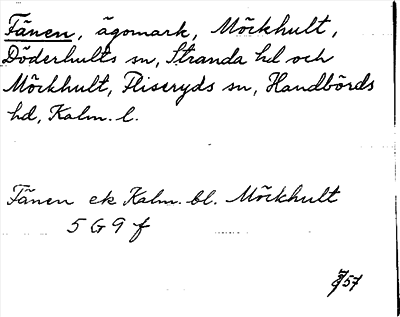 Fänen, ägomark, Möckhult,
Döderhults sn, Stranda hd och
Möckhult, Fliseryds sn, Handbörds
hd, Kalm. l.
Fänen ek Kalm. bl. Möckhult
5 G 9 f
57